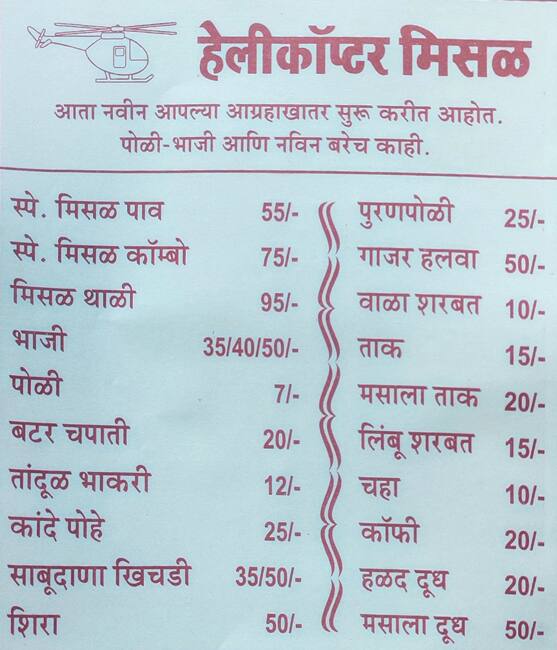 हेलीकॉप्टर मिसळ
आता नवीन आपल्या आग्रहाखातर सुरू करीत आहोत.
पोळी-भाजी आणि नविन बरेच काही.
स्पे. मिसळ पाव 55/-
स्पे. मिसळ कॉम्बो 75/-
मिसळ थाळी 95/-
भाजी 35/40/50/-
पोळी 7/-
बटर चपाती 20/-
तांदूळ भाकरी 12/-
कांदे पोहे 25/-
साबूदाणा खिचडी 35/50/-
शिरा 50/-
पुरणपोळी 25/-
गाजर हलवा 50/-
वाळा शरबत 10/-
ताक 15/-
मसाला ताक 20/-
लिंबू शरबत 15/-
चहा 10/-
कॉफी 20/-
हळद दूध 20/-
मसाला दूध 50/-